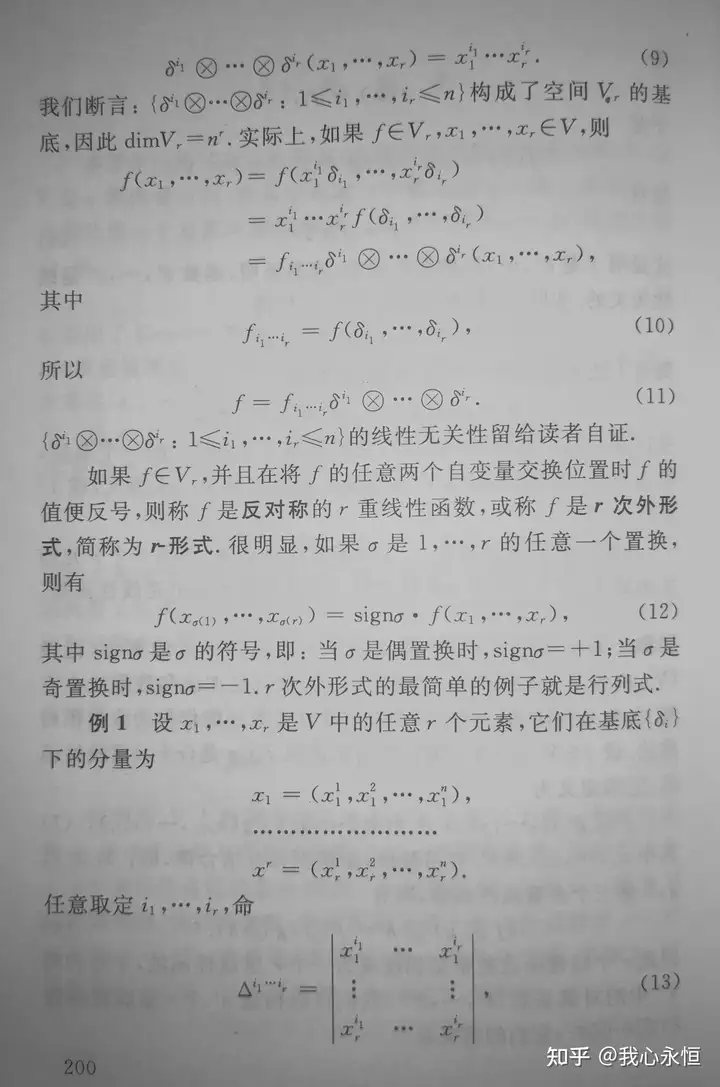 δ^{i₁} ⊗ ⋯ ⊗ δ^{i_r}(x₁,⋯,x_r) = x₁^{i₁}⋯x_r^{i_r}. (9)
我们断言：{δ^{i₁}⊗⋯⊗δ^{i_r}：1≤i₁,⋯,i_r≤n}构成了空间 V_r 的基
底,因此 dimV_r=n^r. 实际上,如果 f∈V_r,x₁,⋯,x_r∈V,则
f(x₁,⋯,x_r) = f(x₁^{i₁}δ_{i₁},⋯,x_r^{i_r}δ_{i_r})
= x₁^{i₁}⋯x_r^{i_r}f(δ_{i₁},⋯,δ_{i_r})
= f_{i₁⋯i_r}δ^{i₁} ⊗ ⋯ ⊗ δ^{i_r}(x₁,⋯,x_r),
其中
f_{i₁⋯i_r} = f(δ_{i₁},⋯,δ_{i_r}), (10)
所以
f = f_{i₁⋯i_r}δ^{i₁} ⊗ ⋯ ⊗ δ^{i_r}. (11)
{δ^{i₁}⊗⋯⊗δ^{i_r}：1≤i₁,⋯,i_r≤n}的线性无关性留给读者自证.
如果 f∈V_r,并且在将 f 的任意两个自变量交换位置时 f 的
值便反号,则称 f 是反对称的 r 重线性函数,或称 f 是 r 次外形
式,简称为 r-形式. 很明显,如果 σ 是 1,⋯,r 的任意一个置换,
则有
f(x_{σ(1)},⋯,x_{σ(r)}) = signσ · f(x₁,⋯,x_r), (12)
其中 signσ 是 σ 的符号,即：当 σ 是偶置换时,signσ=+1;当 σ 是
奇置换时,signσ=−1. r 次外形式的最简单的例子就是行列式.
例 1 设 x₁,⋯,x_r 是 V 中的任意 r 个元素,它们在基底{δ_i}
下的分量为
x₁ = (x₁^1,x₁^2,⋯,x₁^n),
⋯⋯⋯⋯⋯⋯⋯⋯
x^r = (x_r^1,x_r^2,⋯,x_r^n).
任意取定 i₁,⋯,i_r,命
x₁^{i₁} ⋯ x₁^{i_r}
Δ^{i₁⋯i_r} = ⋮ ⋮ , (13)
x_r^{i₁} ⋯ x_r^{i_r}
200
知乎 @我心永恒